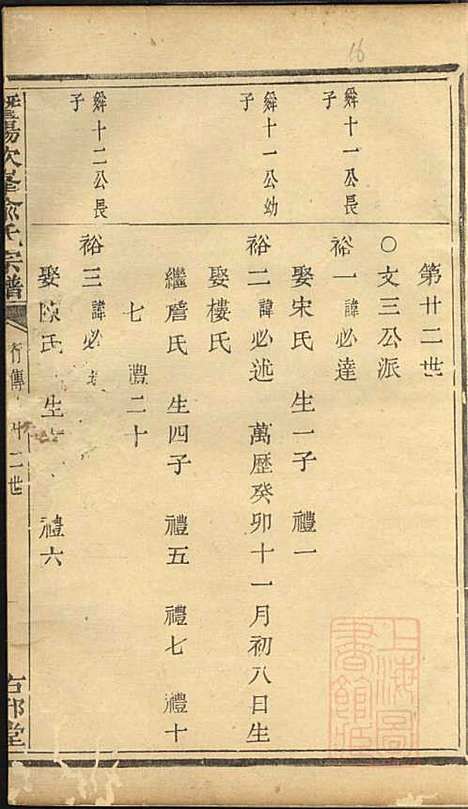 16
第廿二世
○文三公派
舜十一公長子
裕一諱必達
娶宋氏 生一子 禮一
舜十一公幼子
裕二諱必述 萬歷癸卯十一月初八日生
娶樓氏
繼詹氏 生四子 禮五 禮七 禮十
七 禮二十
舜十二公長子
裕三諱必
娶 氏 生 禮六
暨陽次峯俞氏宗譜
行傳 廿二世
右邨堂
上海圖書館藏